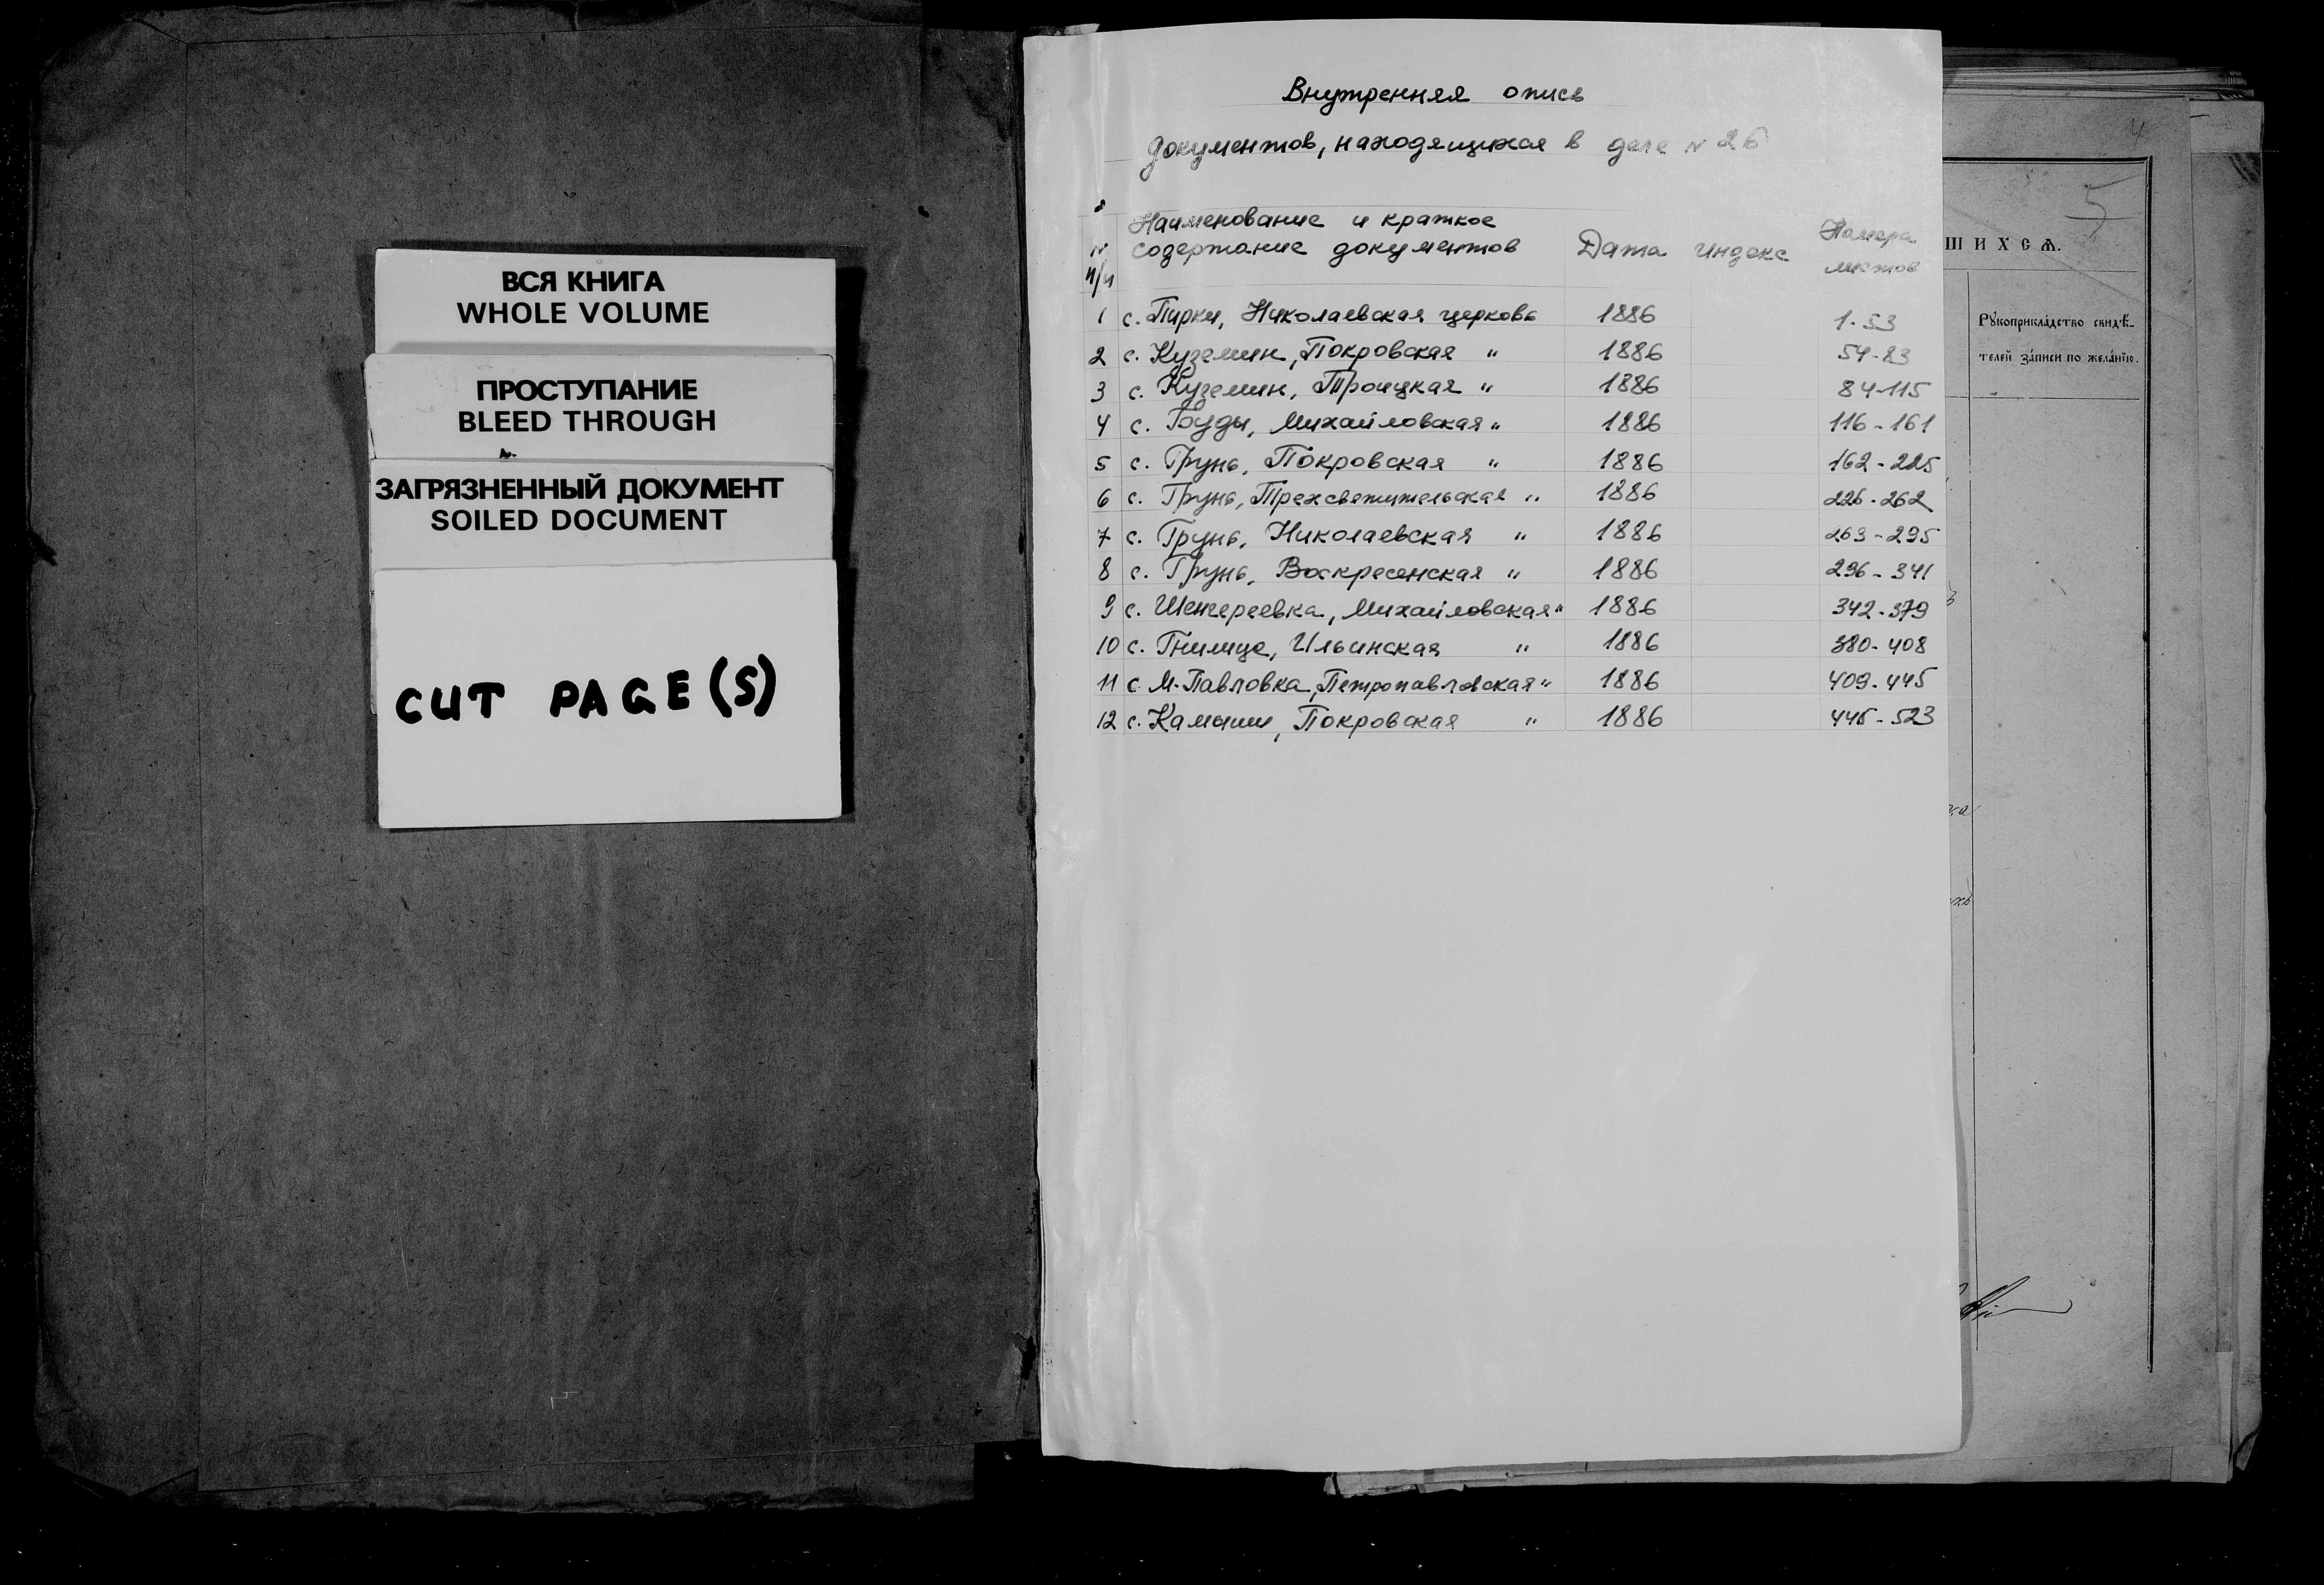 ВСЯ КНИГА
WHOLE VOLUME
ПРОСТУПАНИЕ
BLEED THROUGH
ЗАГРЯЗНЕННЫЙ ДОКУМЕНТ
SOILED DOCUMENT
CUT PAGE(S)
Внутренняя опись
документов, находящихся в деле № 26
№ п/п Наименование и краткое содержание документов Дата индекс Номера листов
1 с. Пирки, Николаевская церковь 1886 1-53
2 с. Куземин, Покровская " 1886 54-83
3 с. Куземин, Троицкая " 1886 84-115
4 с. Буды, Михайловская " 1886 116-161
5 с. Грунь, Покровская " 1886 162-225
6 с. Грунь, Трехсветительская " 1886 226-262
7 с. Грунь, Николаевская " 1886 263-295
8 с. Грунь, Воскресенская " 1886 296-341
9 с. Шенгереевка, Михайловская " 1886 342-379
10 с. Гнилица, Ильинская " 1886 380-408
11 с. М-Павловка, Петропавловская " 1886 409-445
12 с. Камыши, Покровская " 1886 446-523
4
5
ШИХСѦ.
Рꙋкоприкла́дство свидѣ-
телей за́писи по жела́нїю.